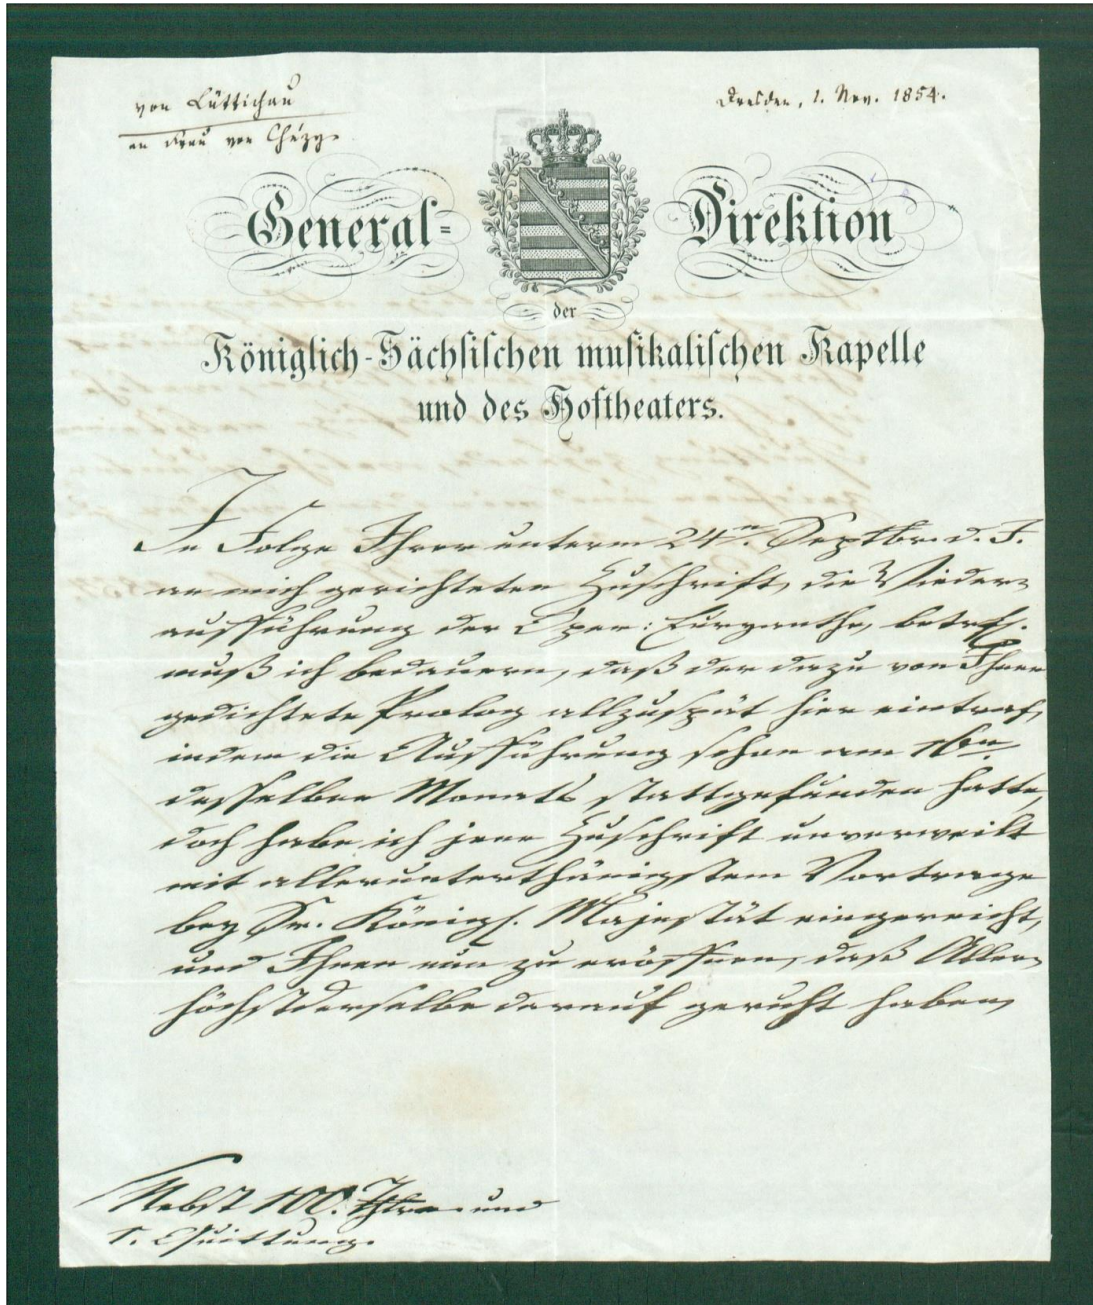 von Lüttichau
an Frau von Chézy.
Dresden, 1. Nov. 1854.
General= Direktion
der
Königlich-Sächsischen musikalischen Kapelle
und des Hoftheaters.
In Folge Ihrer unterm 24n. Septbr. d. J.
an mich gerichteten Zuschrift, die Wieder=
aufführung der Oper: Euryanthe, betreff.
muß ich bedauern, daß der dazu von Ihnen
gedichtete Prolog allzuspät hier eintraf,
indem die Aufführung schon am
desselben Monats stattgefunden hatte,
doch habe ich jene Zuschrift unverweilt
mit allerunterthänigstem Vortrage
bey Sr. Königl. Majestät eingereicht,
und Ihnen nun zu eröffnen, daß Aller=
höchstderselbe darauf geruht haben,
Nebst 100. Thlr. und
1. Quittung.